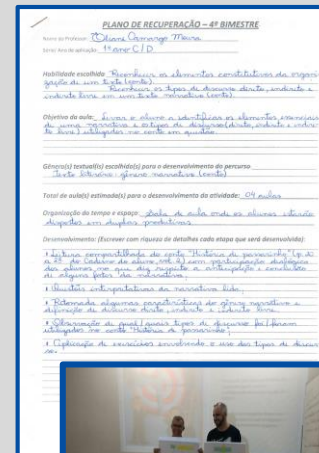 PLANO DE RECUPERAÇÃO – 4º BIMESTRE
Nome do Professor: Eliane Camargo Meira
Série/ Ano de aplicação: 1º anos C/D
Habilidade escolhida: Reconhecer os elementos constitutivos da organi-
zação de um texto (conto).
Reconhecer os tipos de discurso direto, indireto e
indireto livre em um texto narrativo (conto).
Objetivo da aula: Levar o aluno a identificar os elementos essenciais
de uma narrativa e os tipos de discurso (direto, indireto e indire-
to livre) utilizados no conto em questão.
Gênero(s) textual(is) escolhido(s) para o desenvolvimento do percurso
Texto literário: gênero narrativo (conto)
Total de aula(s) estimada(s) para o desenvolvimento da atividade: 04 aulas
Organização do tempo e espaço: Sala de aula onde os alunos estarão
dispostos em duplas produtivas.
Desenvolvimento: (Escrever com riqueza de detalhes cada etapa que será desenvolvida):
• Leitura compartilhada do conto "História de passarinho" (p.
a 23 do Caderno do aluno, vol. 2) com participação dialógica
dos alunos no que diz respeito a antecipação e conclusão
de alguns fatos da narrativa;
• Questões interpretativas da narrativa lida;
• Retomada algumas características do gênero narrativo e
definição de discurso direto, indireto e indireto livre.
• Observação de qual/quais tipos de discurso foi/foram
utilizados no conto "História de passarinho";
• Aplicação de exercícios envolvendo o uso dos tipos de discur
so.